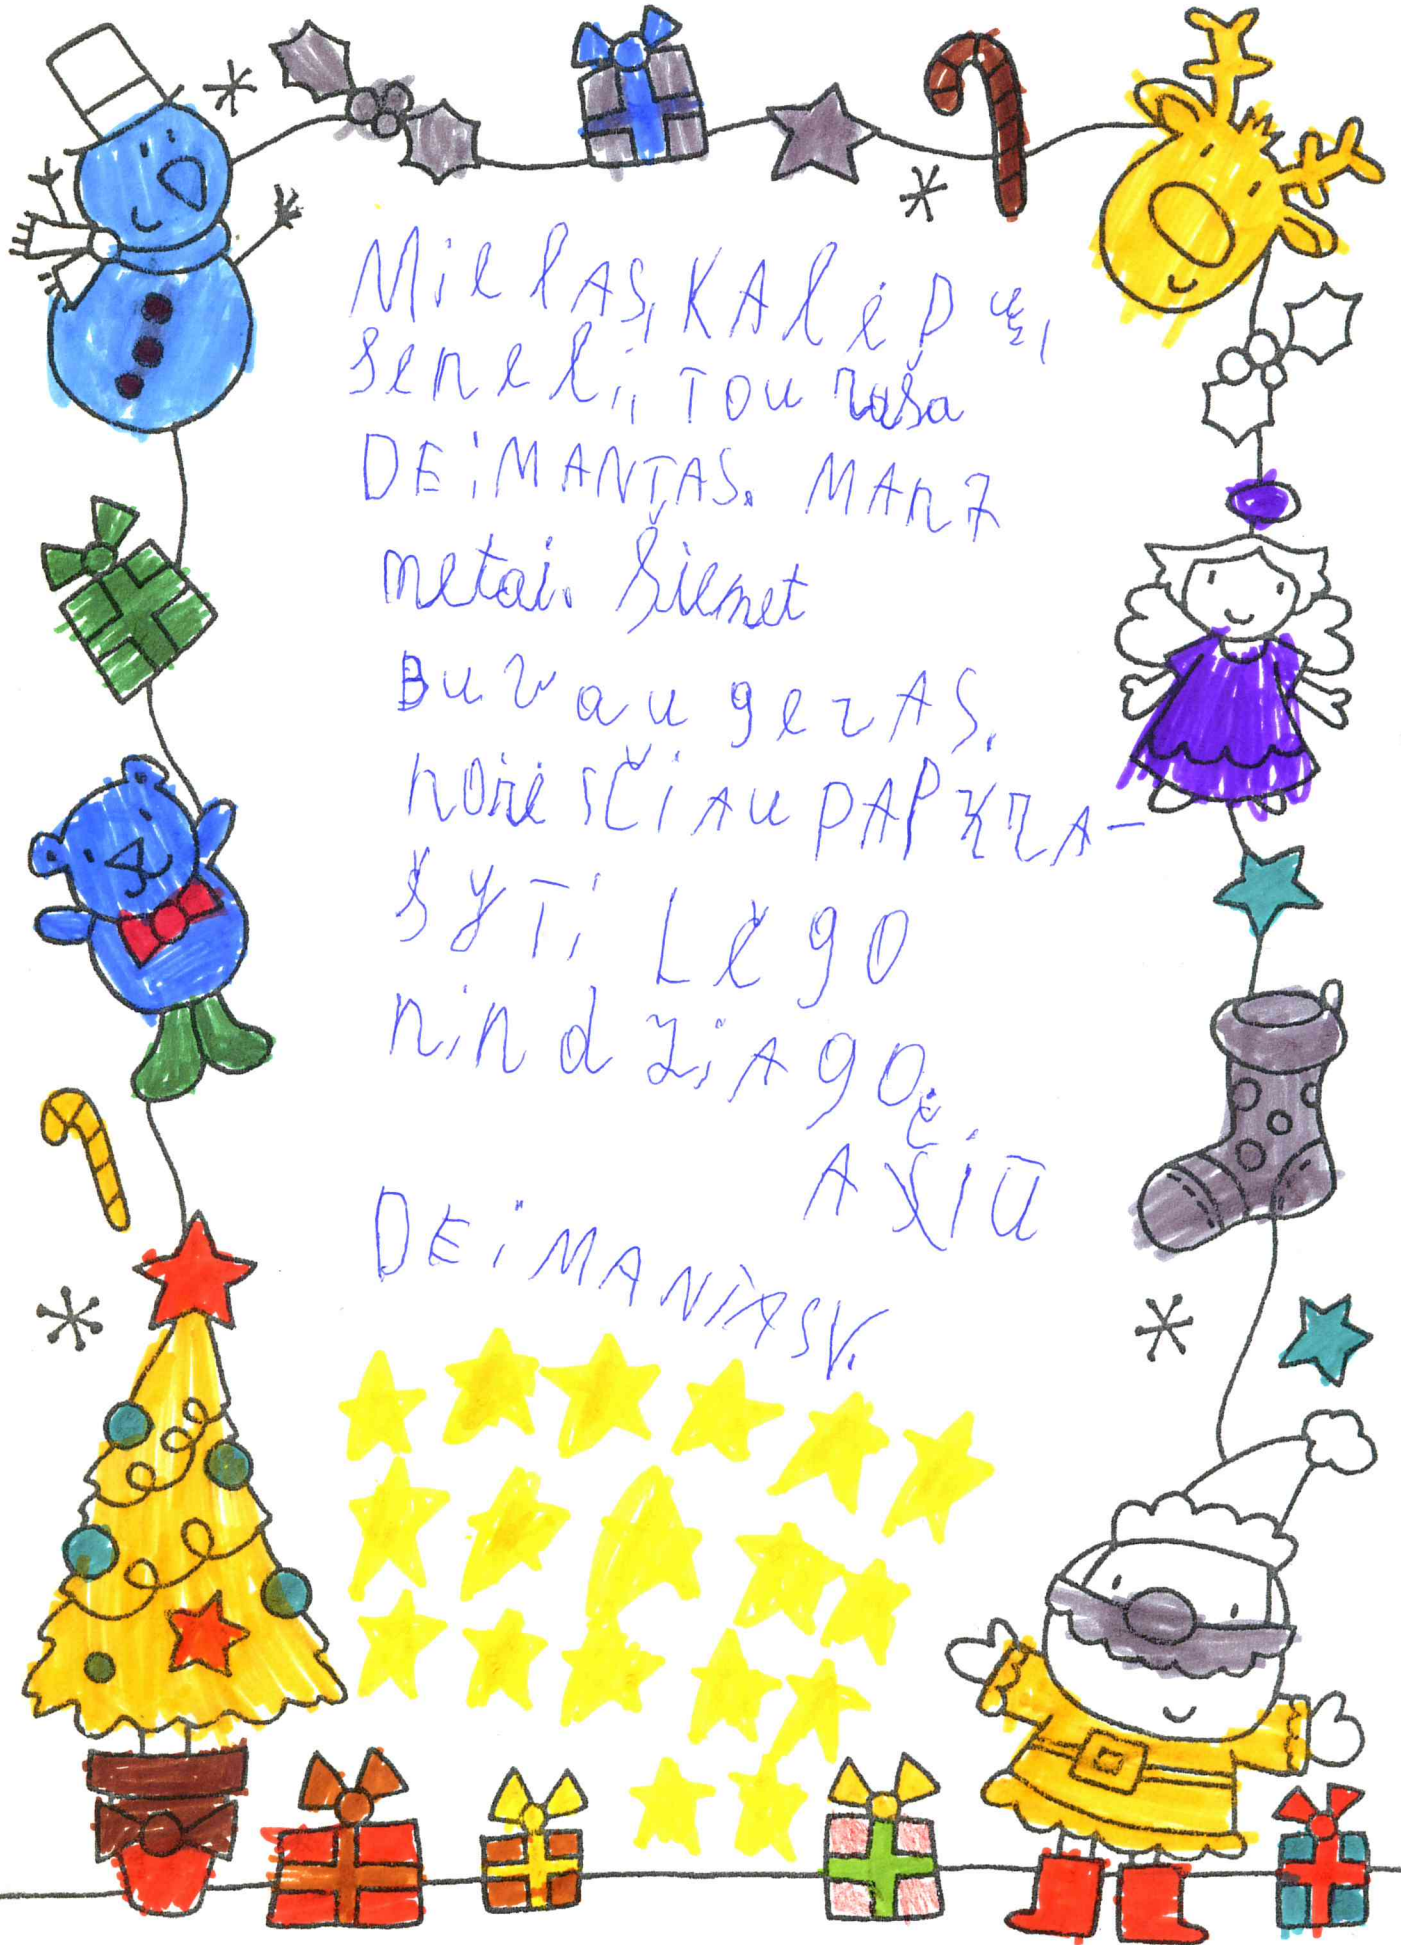 MielAS, KAlėDų,
Seneli, TOU rašo
DEiMANTAS. MAn 7
metai. Šiemet
Buvau gerAS.
norėsČiAu PAPRRA-
šyTi LEgO
nindžiAgO.
AČIŪ
DEiMANTAS V.